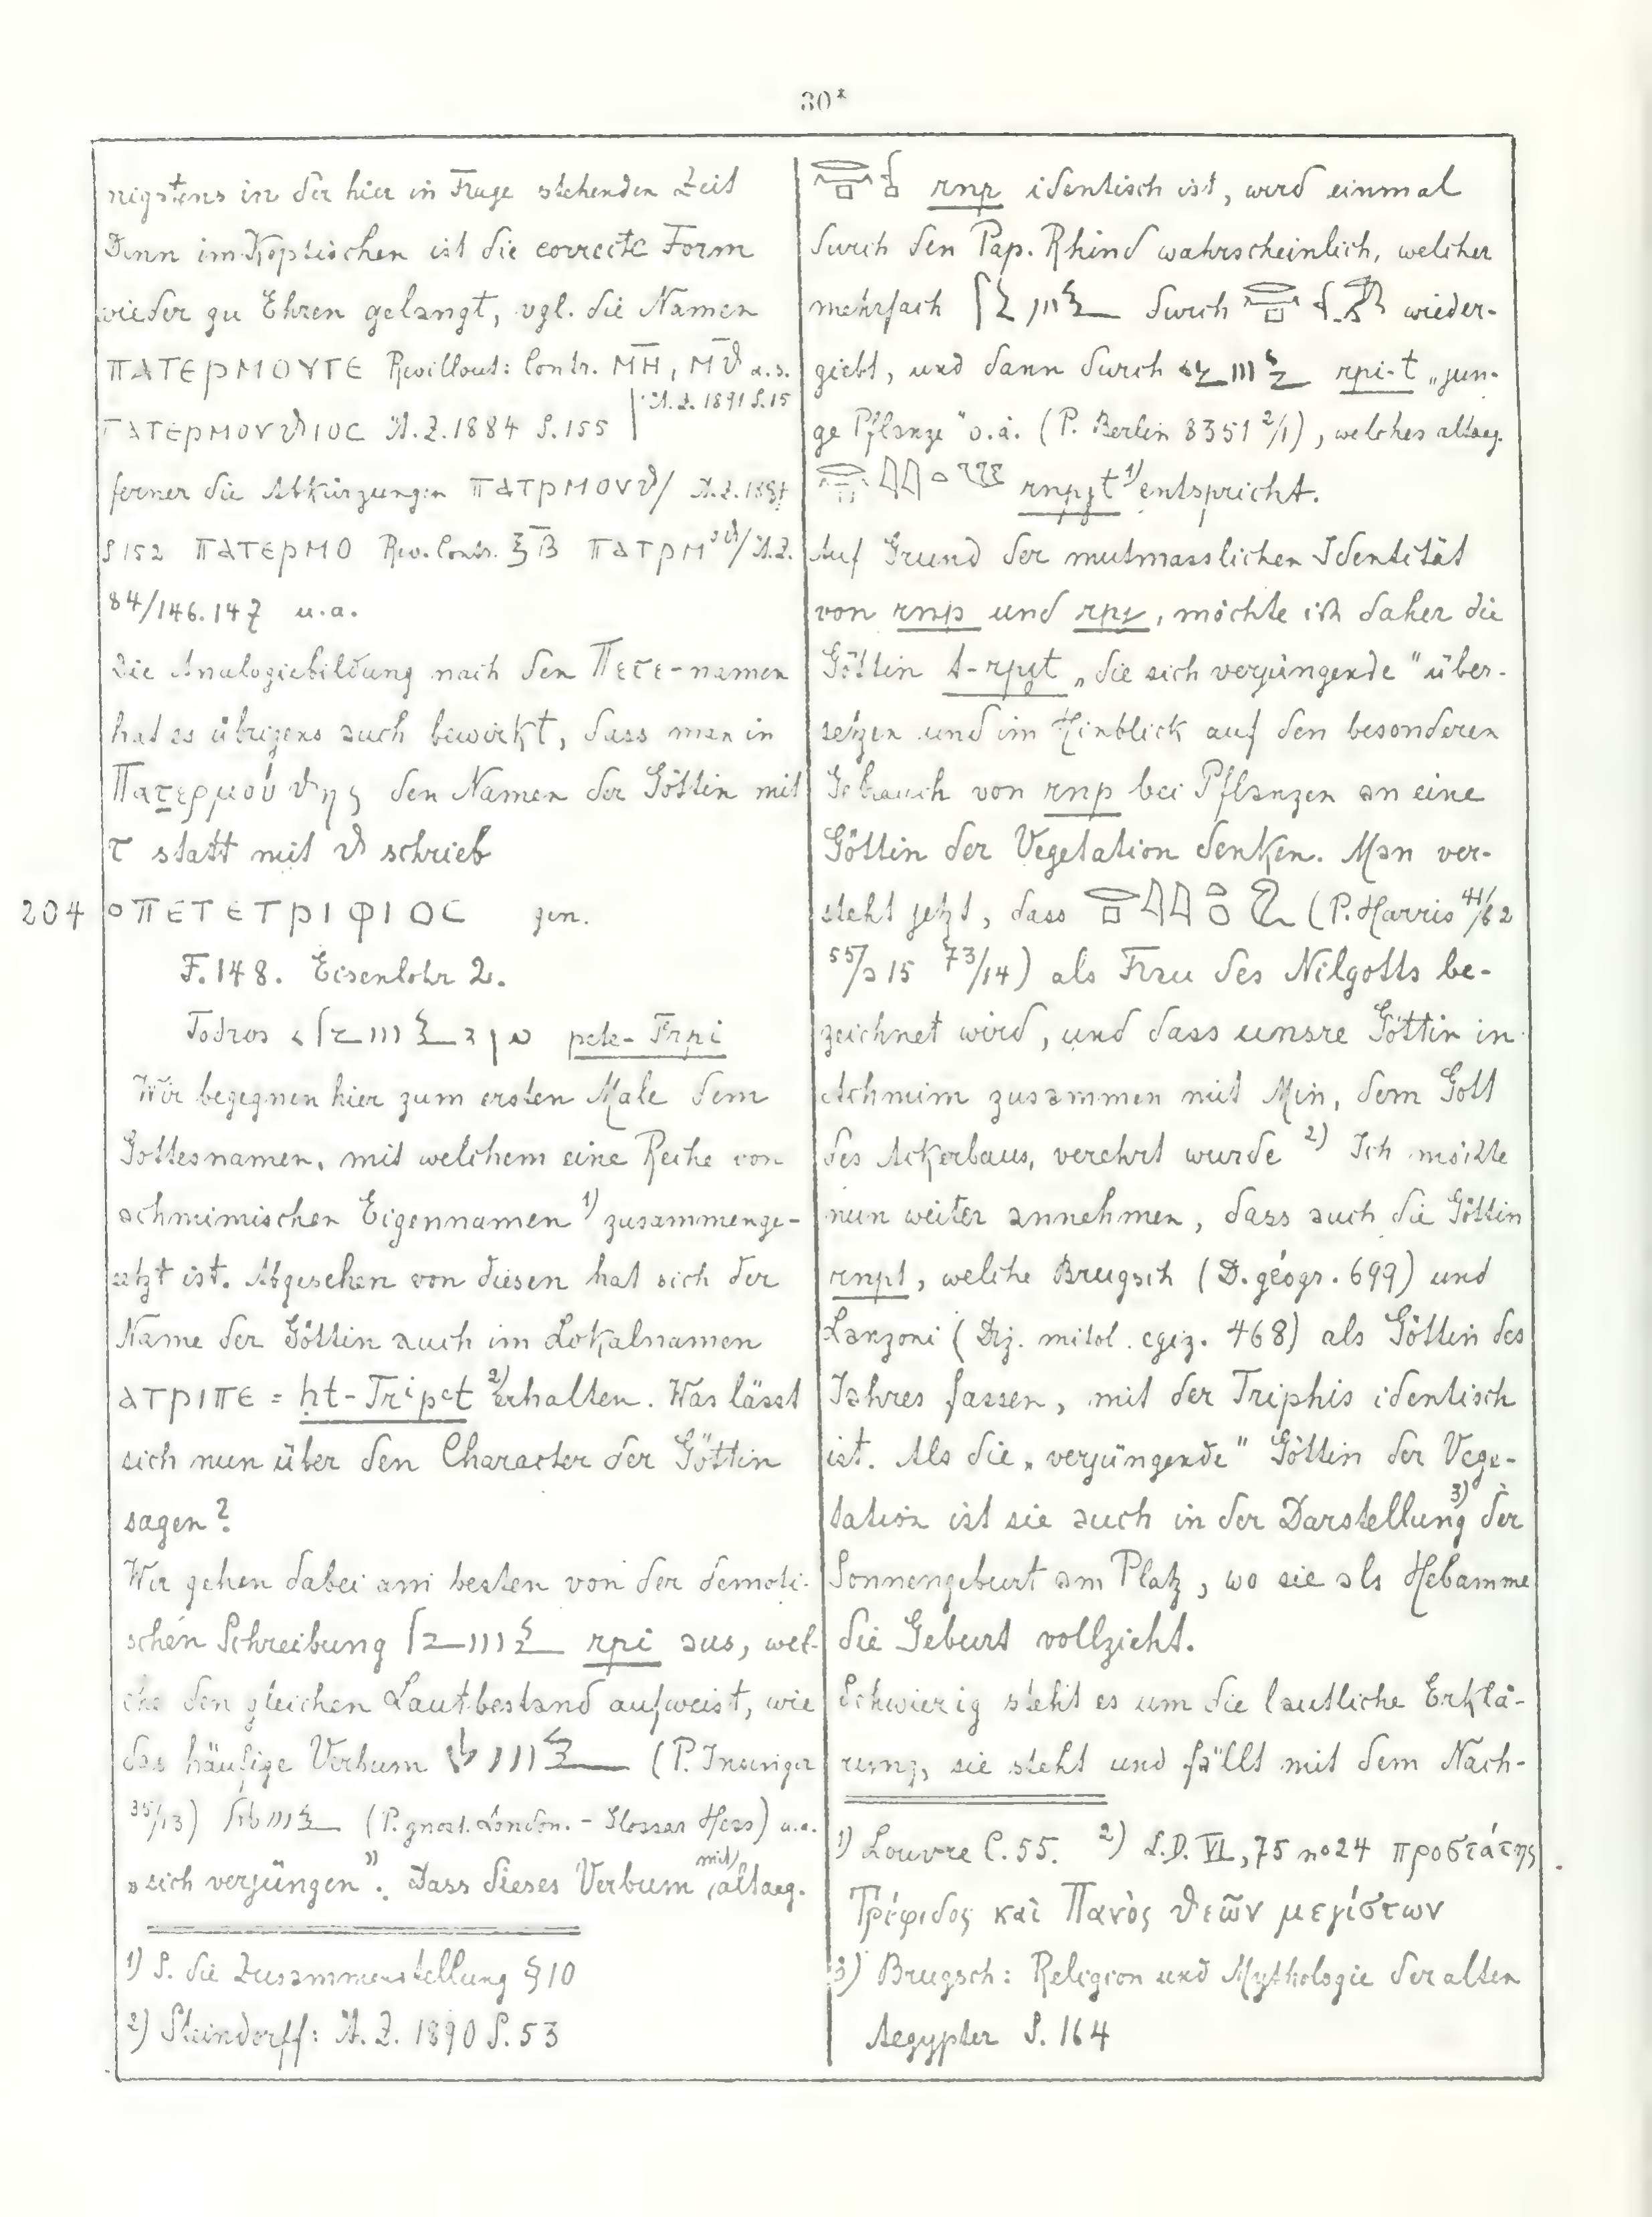 30*
nigstens in der hier in Frage stehenden Zeit
Denn im Koptischen ist die correcte Form
wieder zu Ehren gelangt, vgl. die Namen
ΠΑΤΕΡΜΟΥΤΕ Revillout: Contr. M̅H̅, M̅ϑ̅ a.s.
ΠΑΤΕΡΜΟΥϑΙΟC Ä.Z. 1884 S. 155 | Ä.Z. 1891 S. 15
ferner die Abkürzungen ΠΑΤΡΜΟΥϑ/ Ä.Z. 1891
S 152 ΠΑΤΕΡΜΟ Rev. Contr. ξ̅Β̅ ΠΑΤΡΜ°ϑ/ Ä.Z.
84/146.147 u.a.
Die Analogiebildung nach den Πετε-namen
hat es übrigens auch bewirkt, dass man in
Πατερμούϑης den Namen der Göttin mit
τ statt mit ϑ schrieb
204 ο ΠΕΤΕΤΡΙΦΙΟC gen.
F. 148. Eisenlohr 2.
Todros pete-Trpi
Wir begegnen hier zum ersten Male dem
Gottesnamen, mit welchem eine Reihe von
achmimischen Eigennamen 1) zusammenge-
setzt ist. Abgesehen von diesen hat sich der
Name der Göttin auch im Lokalnamen
ΑΤΡΙΠΕ = ḥt-Tripet 2) erhalten. Was lässt
sich nun über den Character der Göttin
sagen?
Wir gehen dabei am besten von der demoti-
schen Schreibung rpi aus, wel-
che den gleichen Lautbestand aufweist, wie
das häufige Verbum (P. Insinger
35/13) (P. gnost. London. - Glossar Hess) u.a.
„sich verjüngen". Dass dieses Verbum mit altaeg.
1) S. die Zusammenstellung § 10
2) Steindorff: Ä.Z. 1890 S. 53
rnp identisch ist, wird einmal
durch den Pap. Rhind wahrscheinlich, welcher
mehrfach durch wieder-
giebt, und dann durch rpi-t „jun-
ge Pflanze" o.ä. (P. Berlin 8351 2/1), welches altaeg.
rnpyt 1) entspricht.
Auf Grund der mutmasslichen Identität
von rnp und rpy, möchte ich daher die
Göttin t-rpyt „die sich verjüngende" über-
setzen und im Hinblick auf den besonderen
Gebrauch von rnp bei Pflanzen an eine
Göttin der Vegetation denken. Man ver-
steht jetzt, dass (P. Harris 41/62
55/215 73/14) als Frau des Nilgotts be-
zeichnet wird, und dass unsre Göttin in
Achmim zusammen mit Min, dem Gott
des Ackerbaus, verehrt wurde 2) Ich möchte
nun weiter annehmen, dass auch die Göttin
rnpt, welche Brugsch (D. géogr. 699) und
Lanzoni (Diz. mitol. egiz. 468) als Göttin des
Jahres fassen, mit der Triphis identisch
ist. Als die „verjüngende" Göttin der Vege-
tation ist sie auch in der Darstellung 3) der
Sonnengeburt am Platz, wo sie als Hebamme
die Geburt vollzieht.
Schwierig steht es um die lautliche Erklä-
rung, sie steht und fällt mit dem Nach-
1) Louvre C. 55. 2) L.D. VI, 75 no 24 προστάτης
Τρίφιδος καὶ Πανὸς ϑεῶν μεγίστων
3) Brugsch: Religion und Mythologie der alten
Aegypter S. 164